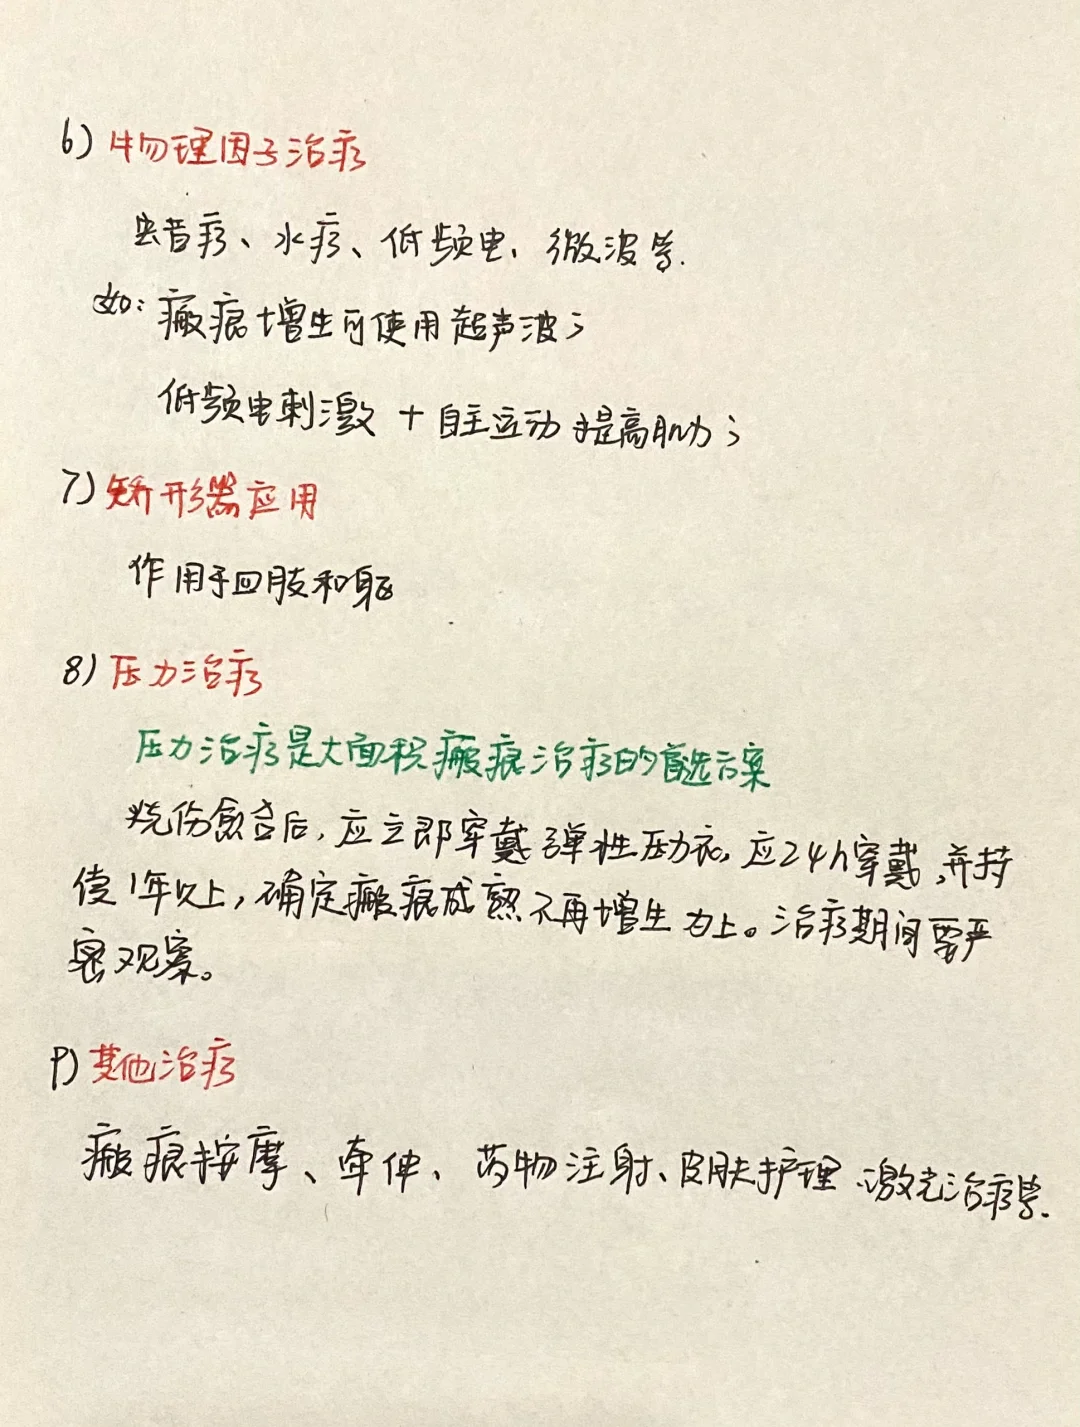 6) 物理因子治疗
蜡疗、水疗、低频电、微波等.
如: 瘢痕增生可使用超声波;
低频电刺激 + 自主运动 提高肌力;
7) 矫形器应用
作用于四肢和躯
8) 压力治疗
压力治疗是大面积瘢痕治疗的首选方案
烧伤愈合后, 应立即穿戴弹性压力衣, 应24h穿戴, 并持
续1年以上, 确定瘢痕成熟不再增生为止。治疗期间需严
密观察。
9) 其他治疗
瘢痕按摩、牵伸、药物注射、皮肤护理、激光治疗等.